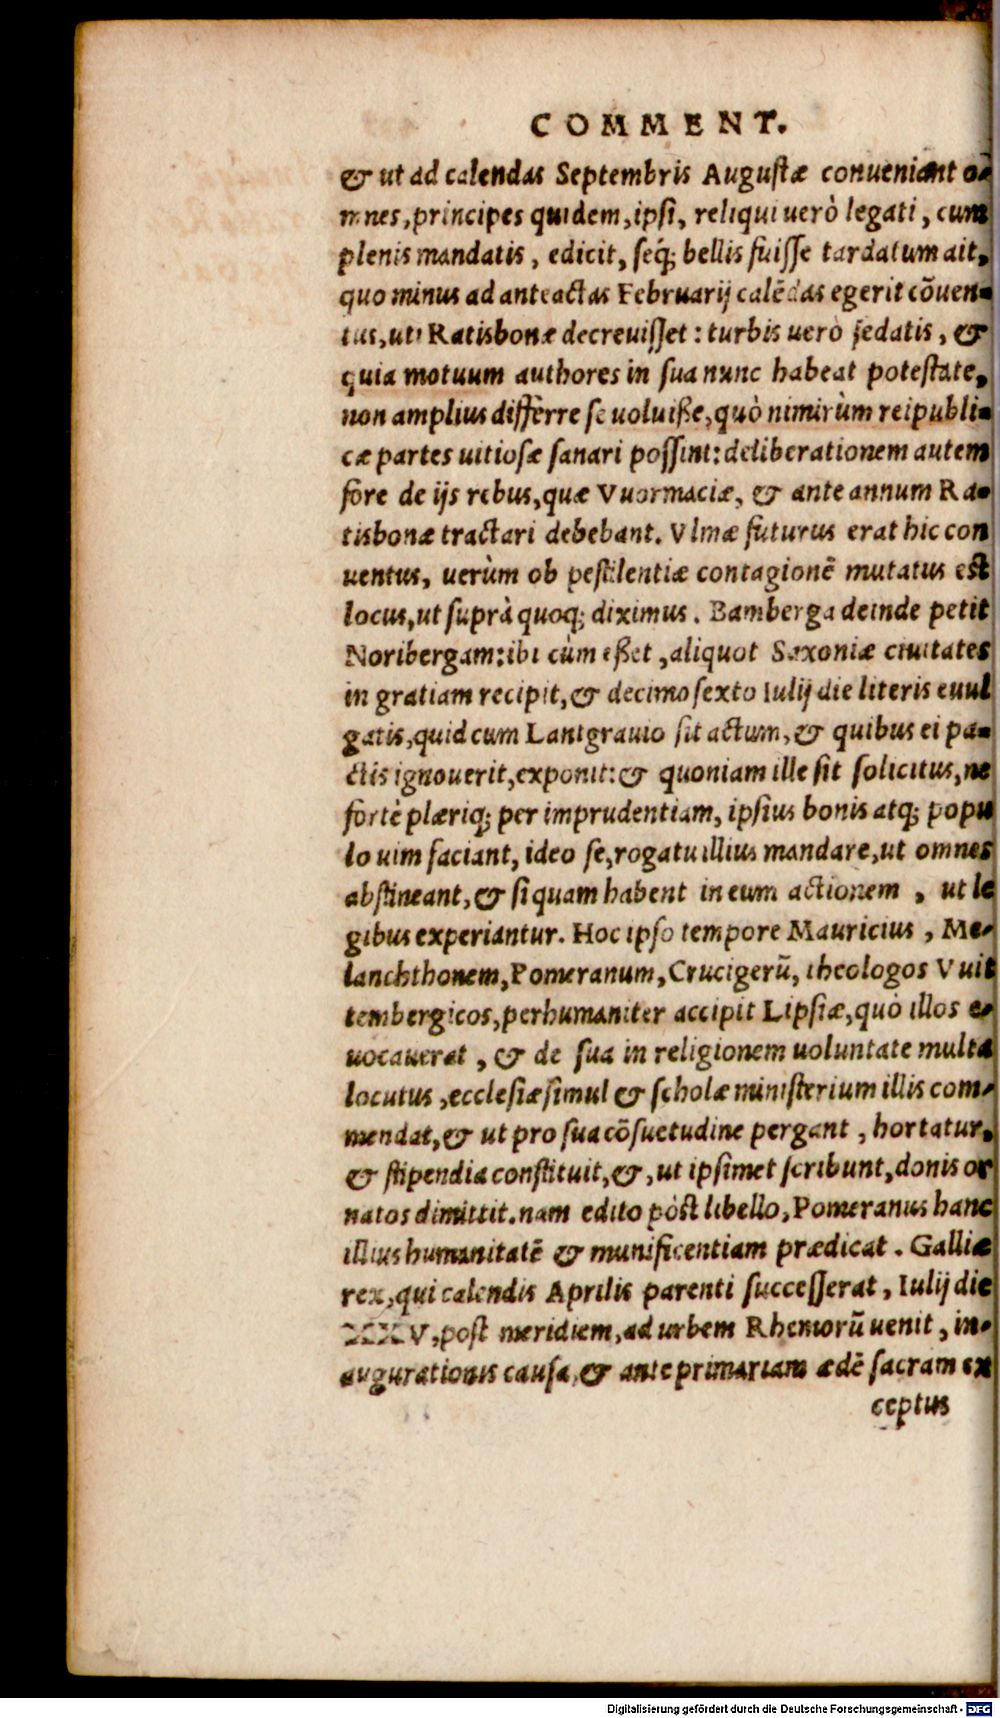 COMMENT.
& ut ad calendas Septembris Augustæ conueniant o-
mnes, principes quidem, ipsi, reliqui uerò legati, cum
plenis mandatis, edicit, seq; bellis fuisse tardatum ait,
quo minus ad anteactas Februarij calẽdas egerit cõuen-
tus, uti Ratisbonæ decreuisset: turbis uerò sedatis, &
quia motuum authores in sua nunc habeat potestate,
non amplius differre se uoluiße, quò nimirùm reipubli-
cæ partes uitiosæ sanari possint: deliberationem autem
fore de ijs rebus, quæ Vuormaciæ, & ante annum Ra-
tisbonæ tractari debebant. Vlmæ futurus erat hic con
uentus, uerùm ob pestilentiæ contagionẽ mutatus est
locus, ut suprà quoq; diximus. Bamberga deinde petit
Noribergam: ibi cùm eßet, aliquot Saxoniæ ciuitates
in gratiam recipit, & decimosexto Iulij die literis euul
gatis, quid cum Lantgrauio sit actum, & quibus ei pa-
ctis ignouerit, exponit: & quoniam ille sit solicitus, ne
fortè plæriq; per imprudentiam, ipsius bonis atq; popu
lo uim faciant, ideo se, rogatu illius mandare, ut omnes
abstineant, & si quam habent in eum actionem, ut le
gibus experiantur. Hoc ipso tempore Mauricius, Me-
lanchthonem, Pomeranum, Crucigerũ, theologos Vuit
tembergicos, perhumaniter accipit Lipsiæ, quò illos e-
uocauerat, & de sua in religionem uoluntate multa
locutus, ecclesiæ simul & scholæ ministerium illis com-
mendat, & ut pro sua cõsuetudine pergant, hortatur,
& stipendia constituit, &, ut ipsimet scribunt, donis or
natos dimittit. nam edito pòst libello, Pomeranus hanc
illius humanitatẽ & munificentiam prædicat. Galliæ
rex, qui calendis Aprilis parenti successerat, Iulij die
XXXV, post meridiem, ad urbem Rhemorũ uenit, in-
augurationis causa, & ante primariam ædẽ sacram ex
ceptus
Digitalisierung gefördert durch die Deutsche Forschungsgemeinschaft - DFG